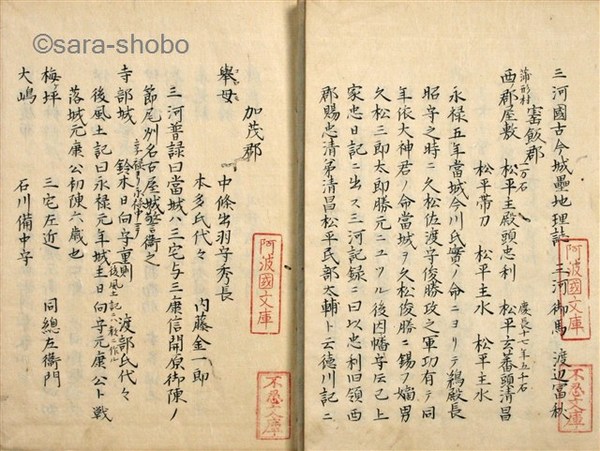 ©sara-shobo
三河國古今城壘地理誌 三河御馬 渡辺富秋
寳飯郡
蒲形村 一万石 慶長十七年五千石
西郡屋敷 松平主殿頭忠利 松平玄蕃頭清昌
松平帯刀 松平主水 松平主水
永禄五年當城今川氏實ノ命ニヨリテ鵜殿長
照守之時ニ久松佐渡守俊勝攻之軍功有テ同
年依大神君ノ命當城ヲ久松俊勝ニ錫フ嫡男
久松三郎太郎勝元ニユツル後因幡守云已上
家忠日記ニ出ス三河記録ニ曰以忠利旧領西
郡賜忠清弟清昌松平民部太輔ト云德川記ニ
阿波國文庫
不忍文庫
加茂郡
挙母 中條出羽守秀長
本多氏代々 内藤金一郎
三河普録曰當城ハ三宅与三康信開原御陳ノ
節尾州名古屋城警衛之
寺部城 鈴木日向守重則 渡部氏代々
後風土記曰永禄元年城主日向守元康公ト戦
落城元康公初陳六歳也
梅坪 三宅左近 同總左衛門
大嶋 石川備中守
阿波國文庫
不忍文庫